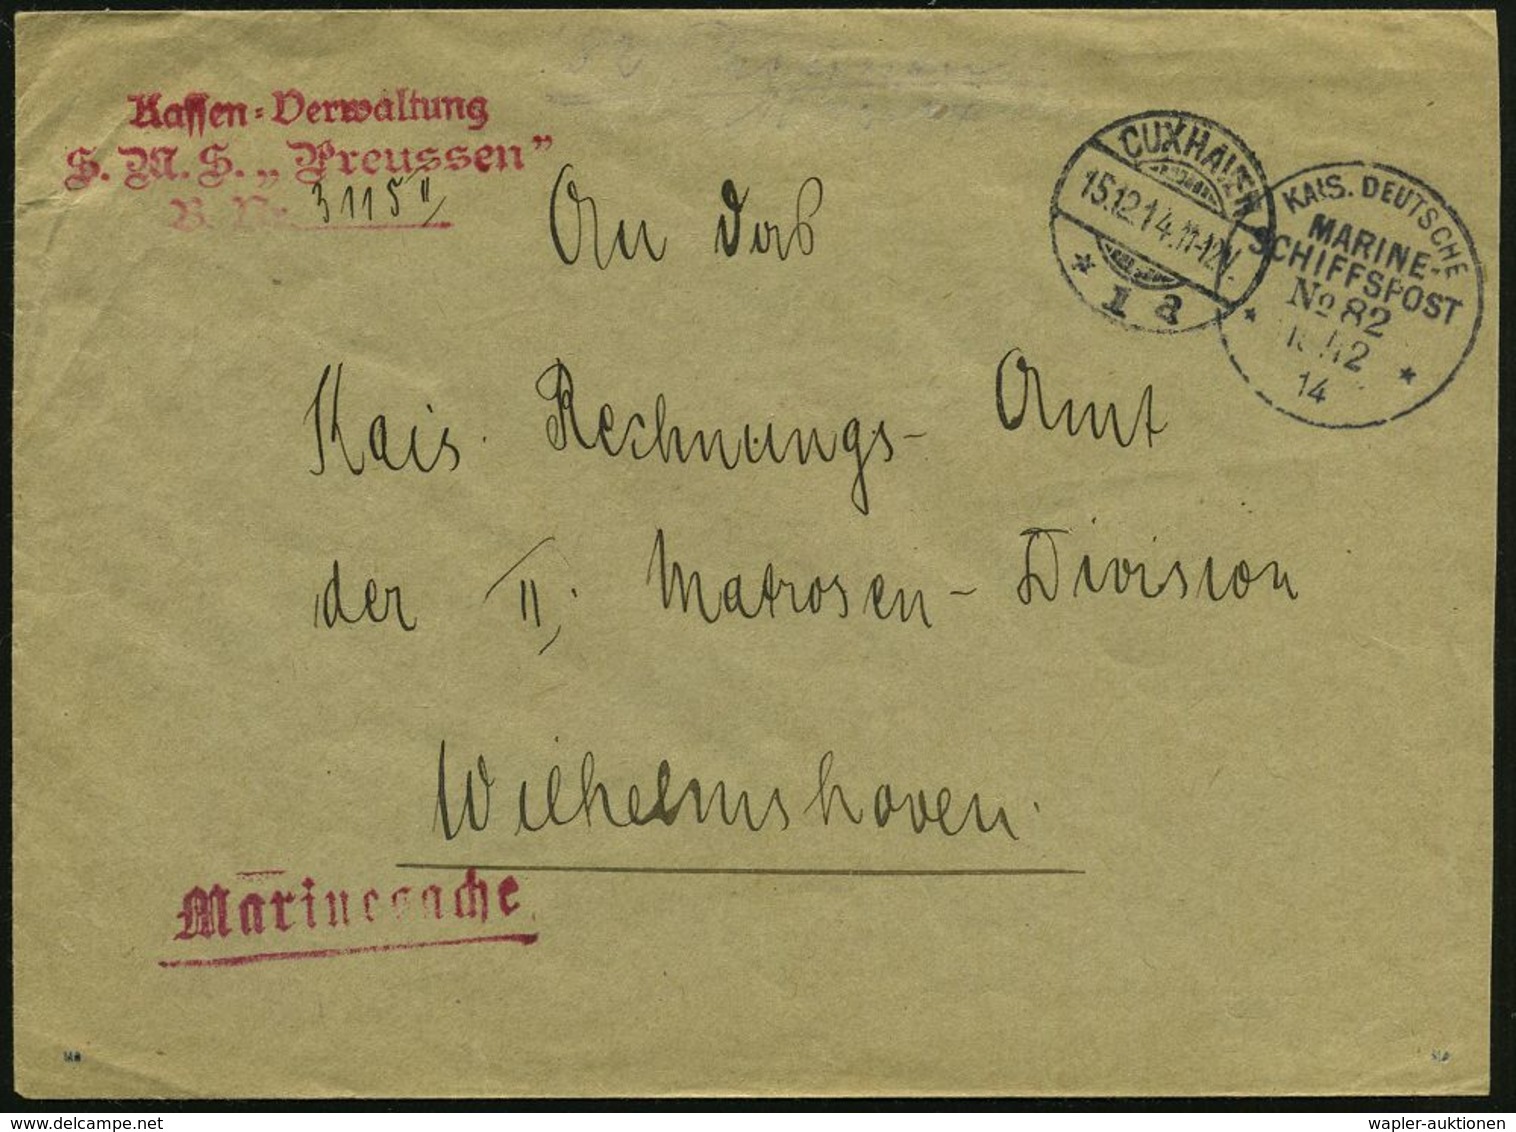 Kassen-Verwaltung
S. M. S. „Preussen”
B. Nr. 3115 II
An das
Kais. Rechnungs-Amt
der II. Matrosen-Division
Wilhelmshaven.
Marinesache
CUXHAVEN
15.12.14.11-12V.
* 1 a
KAIS. DEUTSCHE
MARINE-
SCHIFFSPOST
No 82
* 12 *
14
wapler-auktionen